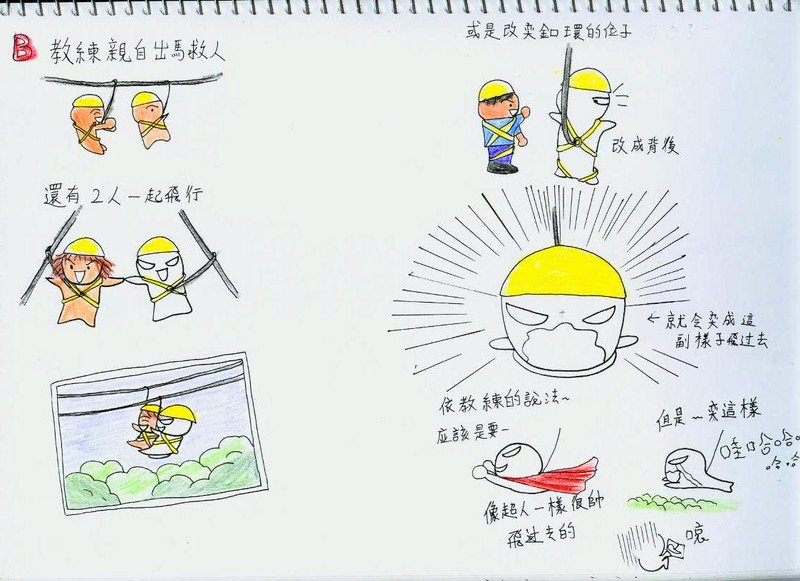 B 教練親自出馬救人
還有 2人一起飛行
或是改变釦環的位子
改成背後
← 就会变成這
副樣子飛过去
依教練的說法~
應該是要~
像超人一樣很帥
飛过去的
但是~变這樣
哇哈哈
哈哈
唉